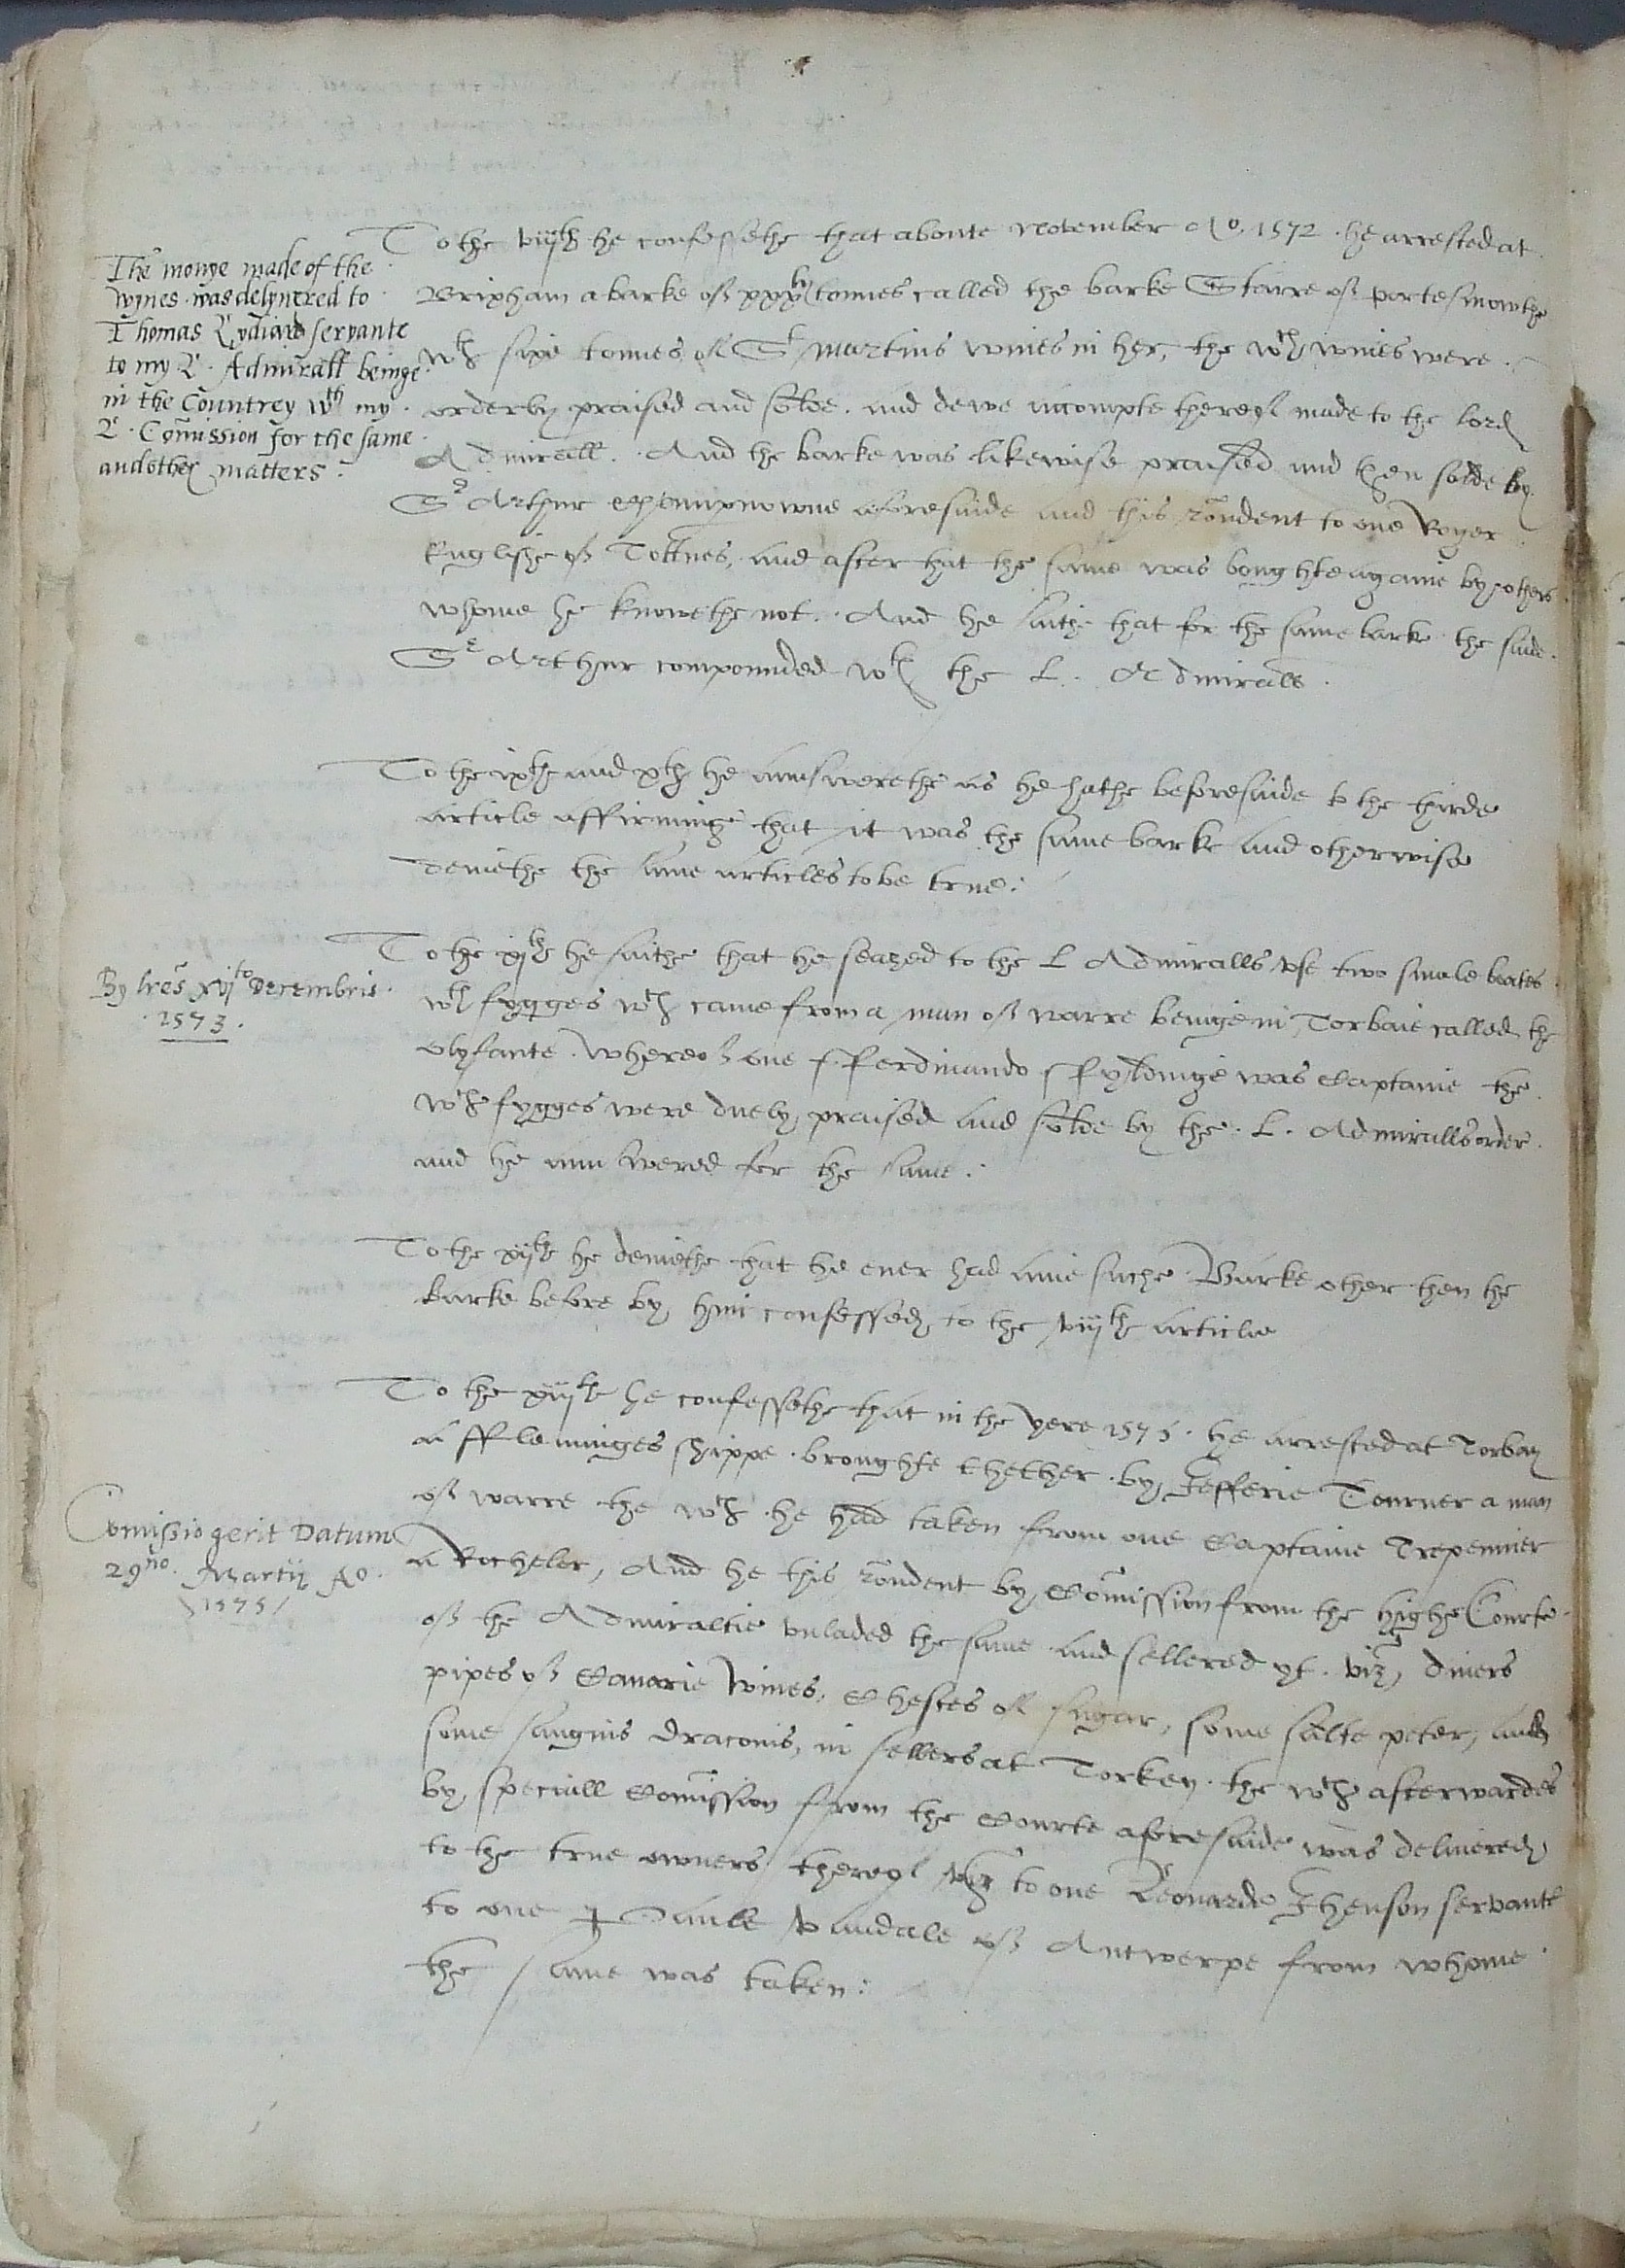 To the viijth he confessethe that aboute November Ao. 1572. he arrested at
Brixham a barke of xxxty tonnes called the barke Starre of portesmowthe
wth sixe tonnes of St Martins wines in her, the wch wines were.
orderly praised and solde. and dewe accompte thereof made to the lord
Admirall. And the barke was likewise praised and then solde by
Sr Arthur Chempnowne aforesaide and this rondent to one Roger
Englishe of Tottnes, and after that the same was boughte againe by others
whome he knowethe not. And he saith that for the same barke the saide.
Sr Arthur compounded wth the L. Admirall.
The monye made of the
wynes was delyuered to
Thomas Lydiard servante
to my L. Admirall beinge
in the Countrey wth my
L. Comission for the same
and other matters.
To the ixth and xth he aunswerethe as he hathe beforesaide to the thirde
article affirminge that it was the same barke and otherwise
deniethe the same articles to be true.
To the xjth he saithe that he seazed to the L Admiralls vse two smale boates
wth fygges wch came from a man of warre beinge in Torbaie called the
Olyfante. whereof one fferdinando ffyldinge was Captaine the
wch fygges were duely praised and solde by the L. Admiralls order.
and he aunswered for the same.
By lres xvjto Decembris.
1573.
To the xijth he deniethe that he euer had anie suche Barke other then the
barke before by him confessed to the viijth article
To the xiijth he confessethe that in the yere 1575. he arrested at Torbay
a fflemminges shippe. broughte thether by Jefferie Tourner a man
of warre the wch he had taken from one Captaine Trepennier
a Rocheler, And he this rondent by Comission from the highe Courte
of the Admiraltie vnladed the same and sellered yt. viz, diuers
pipes of Canarie wines, Chestes of sugar, some salte peter, and
some sanguis draconis, in sellers at Torkey. the wch afterwardes
by speciall Comission from the Courte aforesaide was deliuered
to the true owners thereof viz to one Leonarde Jhenson servante
to one Paull Vandale of Antwerpe from whome
the same was taken:
Comissio gerit Datum
29no. Martij Ao.
1575